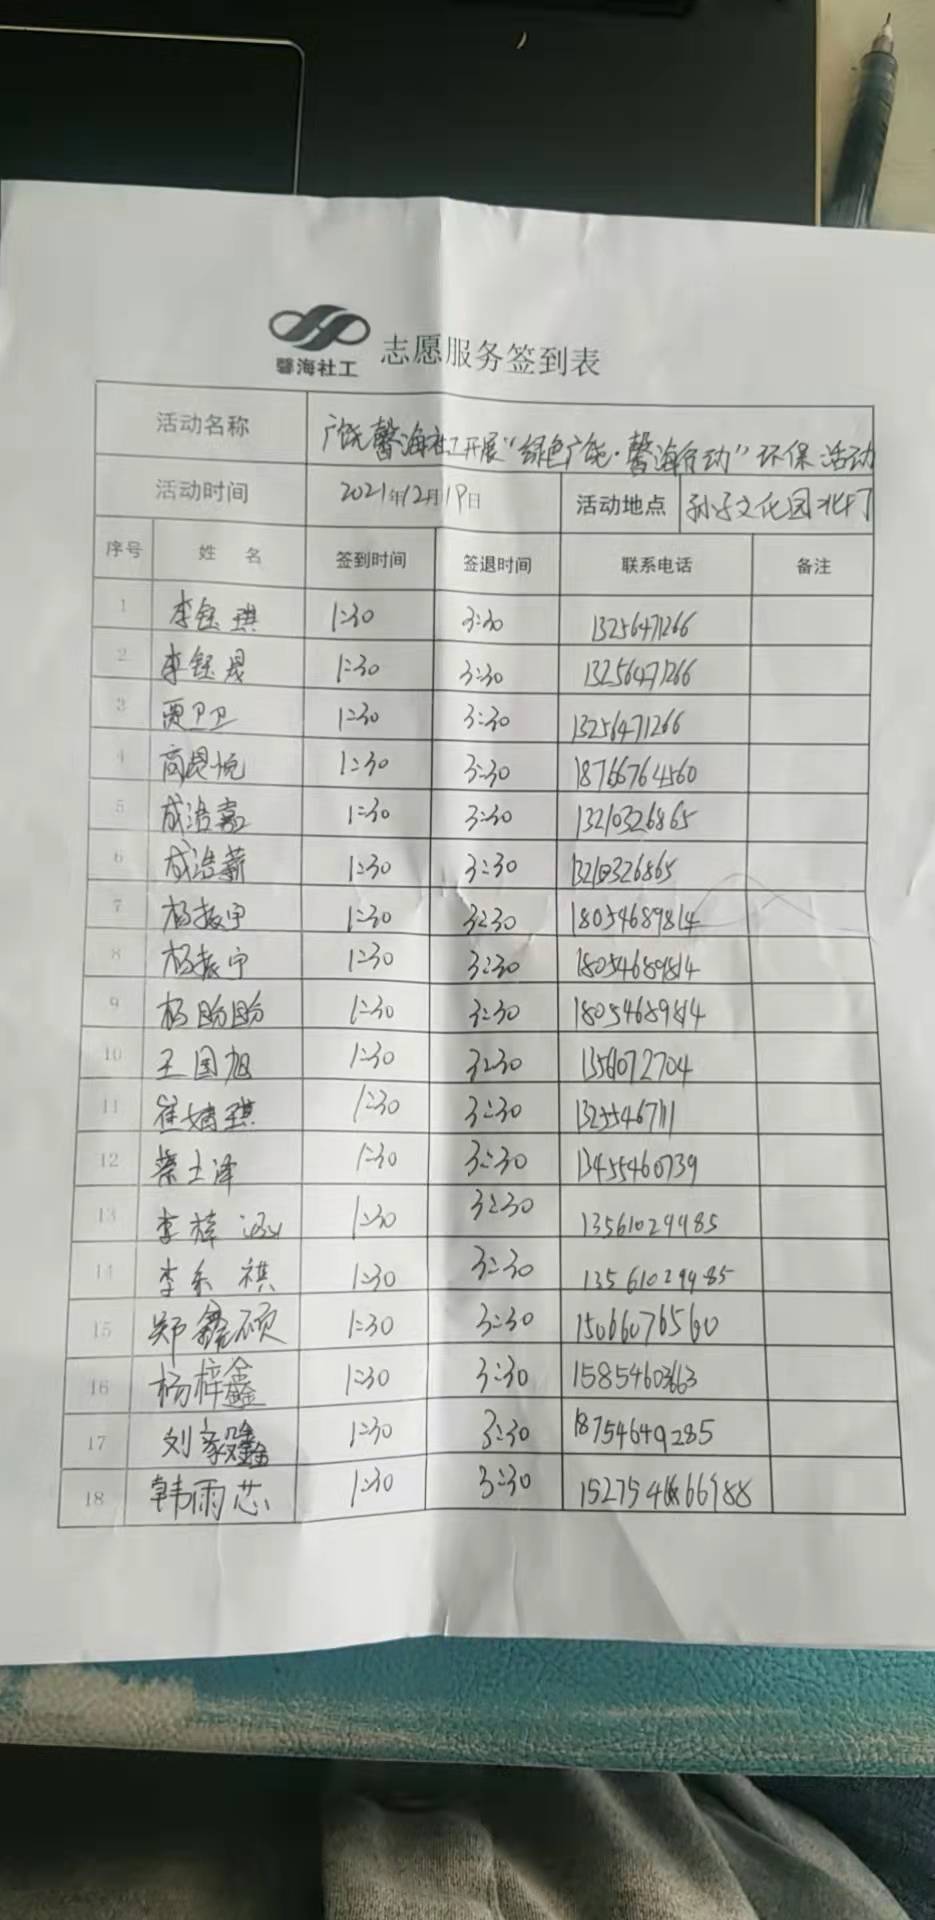 馨海社工 志愿服务签到表
活动名称 广饶馨海社工开展“绿色广饶·馨海行动”环保活动
活动时间 2021年12月19日 活动地点 孙子文化园北门
序号 姓 名 签到时间 签退时间 联系电话 备注
1 李钰琪 1:30 3:30 13256471266
2 李钰晟 1:30 3:30 13256471266
3 贾卫卫 1:30 3:30 13256471266
4 商恩悦 1:30 3:30 18766764560
5 成浩嘉 1:30 3:30 13210326865
6 成浩薪 1:30 3:30 13210326865
7 杨振宇 1:30 3:30 18054689814
8 杨振宁 1:30 3:30 18054689814
9 杨盼盼 1:30 3:30 18054689814
10 王国旭 1:30 3:30
11 崔婧琪 1:30 3:30
12 綦士泽 1:30 3:30 13455460739
13 李梓涵 1:30 3:30 13561029985
14 李东祺 1:30 3:30 13561029985
15 郑鑫硕 1:30 3:30 15066076560
16 杨梓鑫 1:30 3:30 15854603663
17 刘家鑫 1:30 3:30 18754649285
18 韩雨芯 1:30 3:30